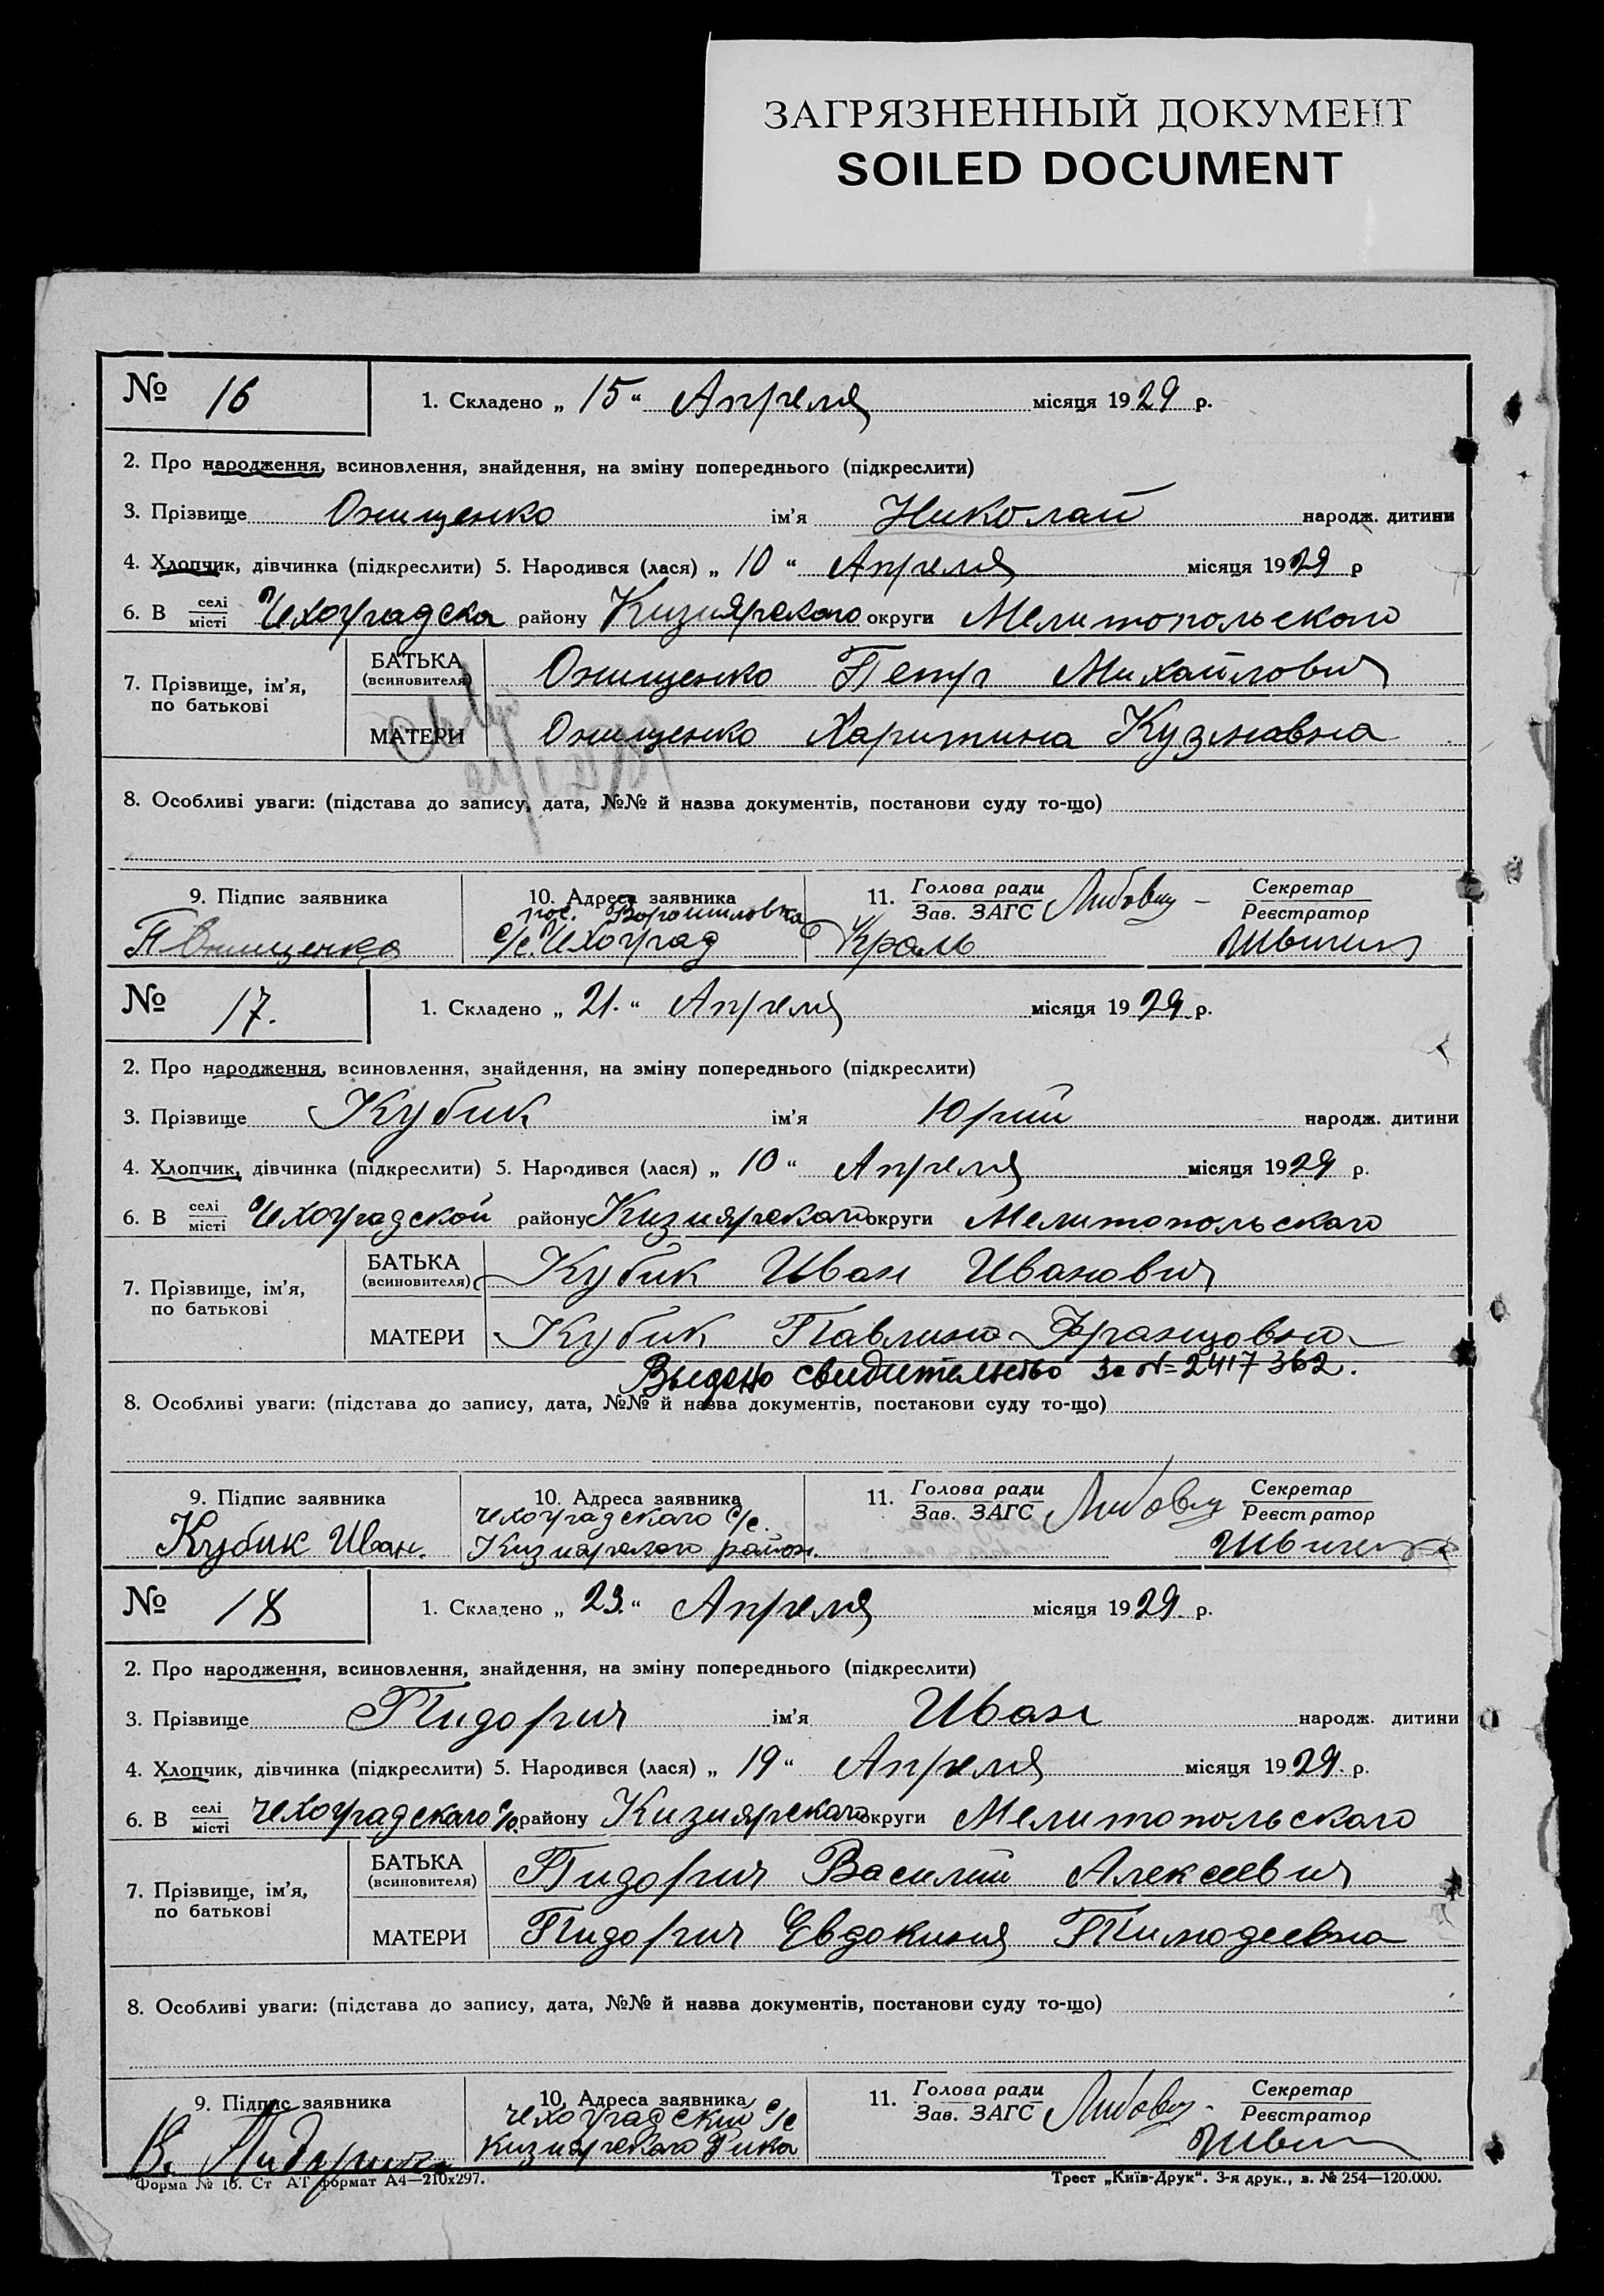 ЗАГРЯЗНЕННЫЙ ДОКУМЕНТ
SOILED DOCUMENT
№ 16 1. Складено „ 15 “ Апреля місяця 1929 р.
2. Про народження, всиновлення, знайдення, на зміну попереднього (підкреслити)
3. Прізвище Онищенко ім'я Николай народж. дитини
4. Хлопчик, дівчинка (підкреслити) 5. Народився (лася) „ 10 “ Апреля місяця 1929 р
6. В селі місті Чехоградска району Кизиярского округи Мелитопольского
7. Прізвище, ім'я, по батькові
БАТЬКА (всиновителя) Онищенко Петр Михайлович
МАТЕРИ Онищенко Харитина Кузмовна
8. Особливі уваги: (підстава до запису, дата, №№ й назва документів, постанови суду то-що)
9. Підпис заявника 10. Адреса заявника 11. Голова ради Зав. ЗАГС Секретар Реєстратор
пос. Ворошиловка
П Онищенко с/с. Чехоград Кроль
№ 17. 1. Складено „ 21. “ Апреля місяця 1929 р.
2. Про народження, всиновлення, знайдення, на зміну попереднього (підкреслити)
3. Прізвище Кубик ім'я Юрий народж. дитини
4. Хлопчик, дівчинка (підкреслити) 5. Народився (лася) „ 10 “ Апреля місяця 1929 р.
6. В селі місті Чехоградской району Кизиярского округи Мелитопольского
7. Прізвище, ім'я, по батькові
БАТЬКА (всиновителя) Кубик Иван Иванович
МАТЕРИ Кубик Павлина Францовна
Выдано свидительство за № 2417362.
8. Особливі уваги: (підстава до запису, дата, №№ й назва документів, постанови суду то-що)
9. Підпис заявника 10. Адреса заявника 11. Голова ради Зав. ЗАГС Секретар Реєстратор
Чехоградского с/с.
Кубик Иван. Кизиярского район.
№ 18 1. Складено „ 23. “ Апреля місяця 1929. р.
2. Про народження, всиновлення, знайдення, на зміну попереднього (підкреслити)
3. Прізвище Пидорич ім'я Иван народж. дитини
4. Хлопчик, дівчинка (підкреслити) 5. Народився (лася) „ 19 “ Апреля місяця 1929. р.
6. В селі місті Чехоградского с/с. району Кизиярского округи Мелитопольского
7. Прізвище, ім'я, по батькові
БАТЬКА (всиновителя) Пидорич Василий Алексеевич
МАТЕРИ Пидорич Евдокиния Тимодеевна
8. Особливі уваги: (підстава до запису, дата, №№ й назва документів, постанови суду то-що)
9. Підпис заявника 10. Адреса заявника 11. Голова ради Зав. ЗАГС Секретар Реєстратор
Чехоградский с/с
В. Пидорич Кизиярского Рика
Форма № 16. Ст АТ формат А4—210x297. Трест „Київ-Друк“. 3-я друк., з. № 254—120.000.